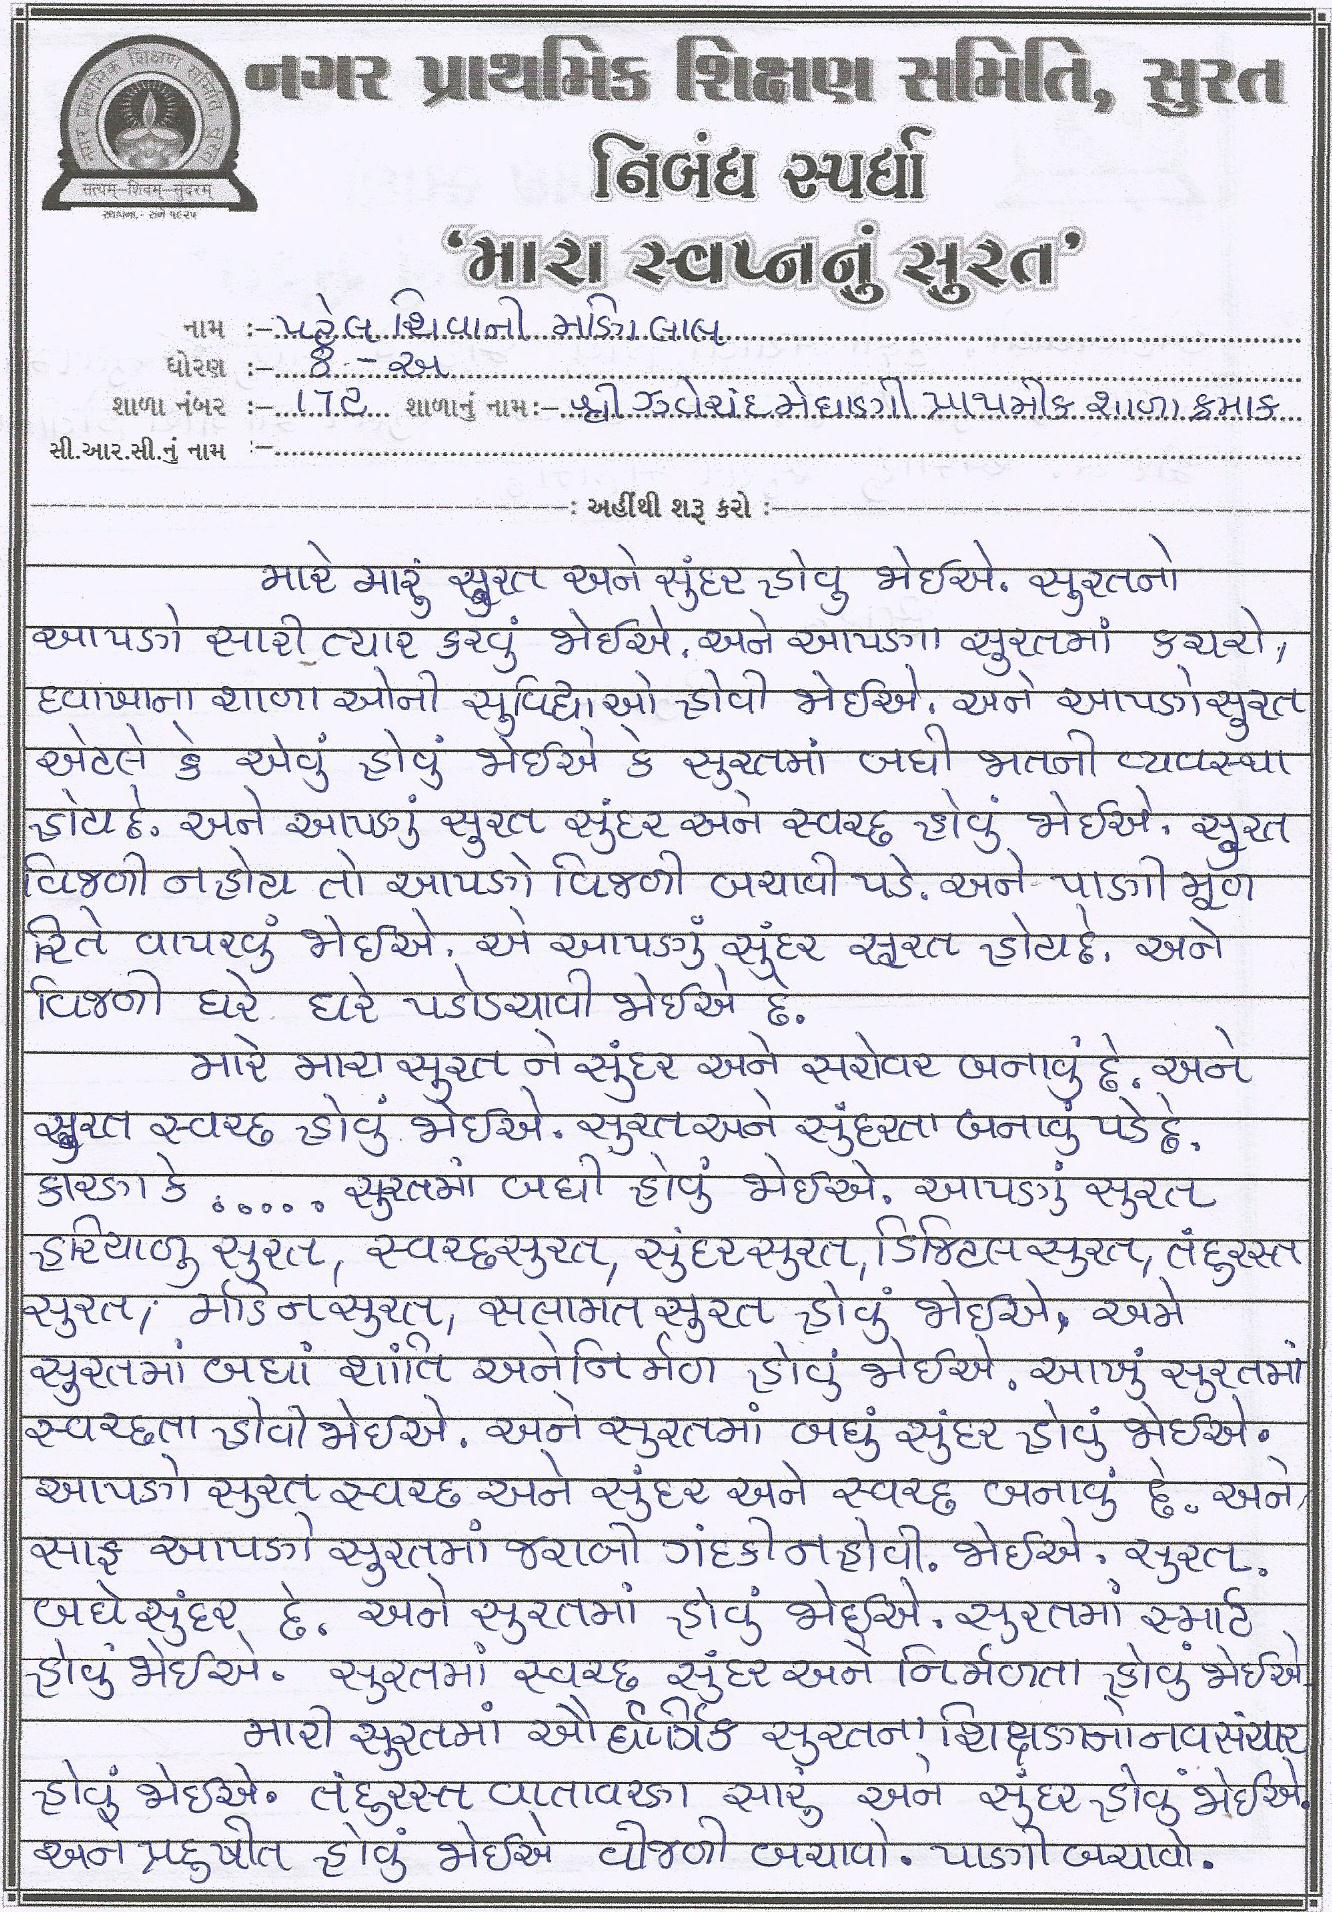 નગર પ્રાથમિક શિક્ષણ સમિતિ સુરત
સત્યમ્-શિવમ્-સુંદરમ્
સ્થાપના.- સને ૧૯૨૫
નગર પ્રાથમિક શિક્ષણ સમિતિ, સુરત
નિબંધ સ્પર્ધા
‘મારા સ્વપ્નનું સુરત’
નામ :- પટેલ શિવાની મણિલાલ
ધોરણ :- 8 - અ
શાળા નંબર :- 178 શાળાનું નામ:- શ્રી ઝવેરચંદ મેઘાણી પ્રાથમીક શાળા ક્રમાક
સી.આર.સી.નું નામ :-
: અહીંથી શરૂ કરો :
મારે મારું સુરત અને સુંદર હોવુ જોઈએ. સુરતનો
આપણે સારી ત્યાર કરવું જોઈએ. અને આપણા સુરતમાં કચરો,
દવાખાના શાળા ઓની સુવિધાઓ હોવી જોઈએ. અને આપણે સુરત
એટલે કે એવું હોવું જોઈએ કે સુરતમાં બધી જાતની વ્યવસ્થા
હોય છે. અને આપણું સુરત સુંદર અને સ્વચ્છ હોવું જોઈએ. સુરત
વિજળી ન હોય તો આપણે વિજળી બચાવી પડે. અને પાણી મૂળ
રિતે વાપરવું જોઈએ. એ આપણું સુંદર સૂરત હોય છે. અને
વિજળી ઘરે ઘરે પહોંચાવી જોઈએ છે.
મારે મારા સુરત ને સુંદર અને સરોવર બનાવું છે. અને
સુરત સ્વચ્છ હોવું જોઈએ. સુરત અને સુંદરતા બનાવું પડે છે.
કારણ કે ..... સુરતમાં બધી હોવું જોઈએ. આપણું સુરત
હરિયાળુ સુરત, સ્વચ્છ સુરત, સુંદર સુરત, ડિજિટલ સુરત, તંદુરસ્ત
સુરત, મોર્ડન સુરત, સલામત સુરત હોવું જોઈએ. અમે
સુરતમાં બધાં શાંતિ અને નિર્મળ હોવું જોઈએ. આખું સુરતમાં
સ્વચ્છતા હોવી જોઈએ. અને સુરતમાં બધું સુંદર હોવું જોઈએ.
આપણે સુરત સ્વચ્છ અને સુંદર અને સ્વચ્છ બનાવું છે. અને
સાફ આપણે સુરતમાં જરાબી ગંદકી ન હોવી. જોઈએ. સુરત.
બધે સુંદર છે. અને સુરતમાં હોવું જોઈએ. સુરતમાં સ્માર્ટ
હોવું જોઈએ. સુરતમાં સ્વચ્છ સુંદર અને નિર્મળતા હોવું જોઈએ
મારી સુરતમાં સુરતના નવસંચાર
હોવું જોઈએ. તંદુરસ્ત વાતાવરણ સારું અને સુંદર હોવું જોઈએ.
અન પ્રદુષીત હોવું જોઈએ વીજળી બચાવો. પાણી બચાવો.